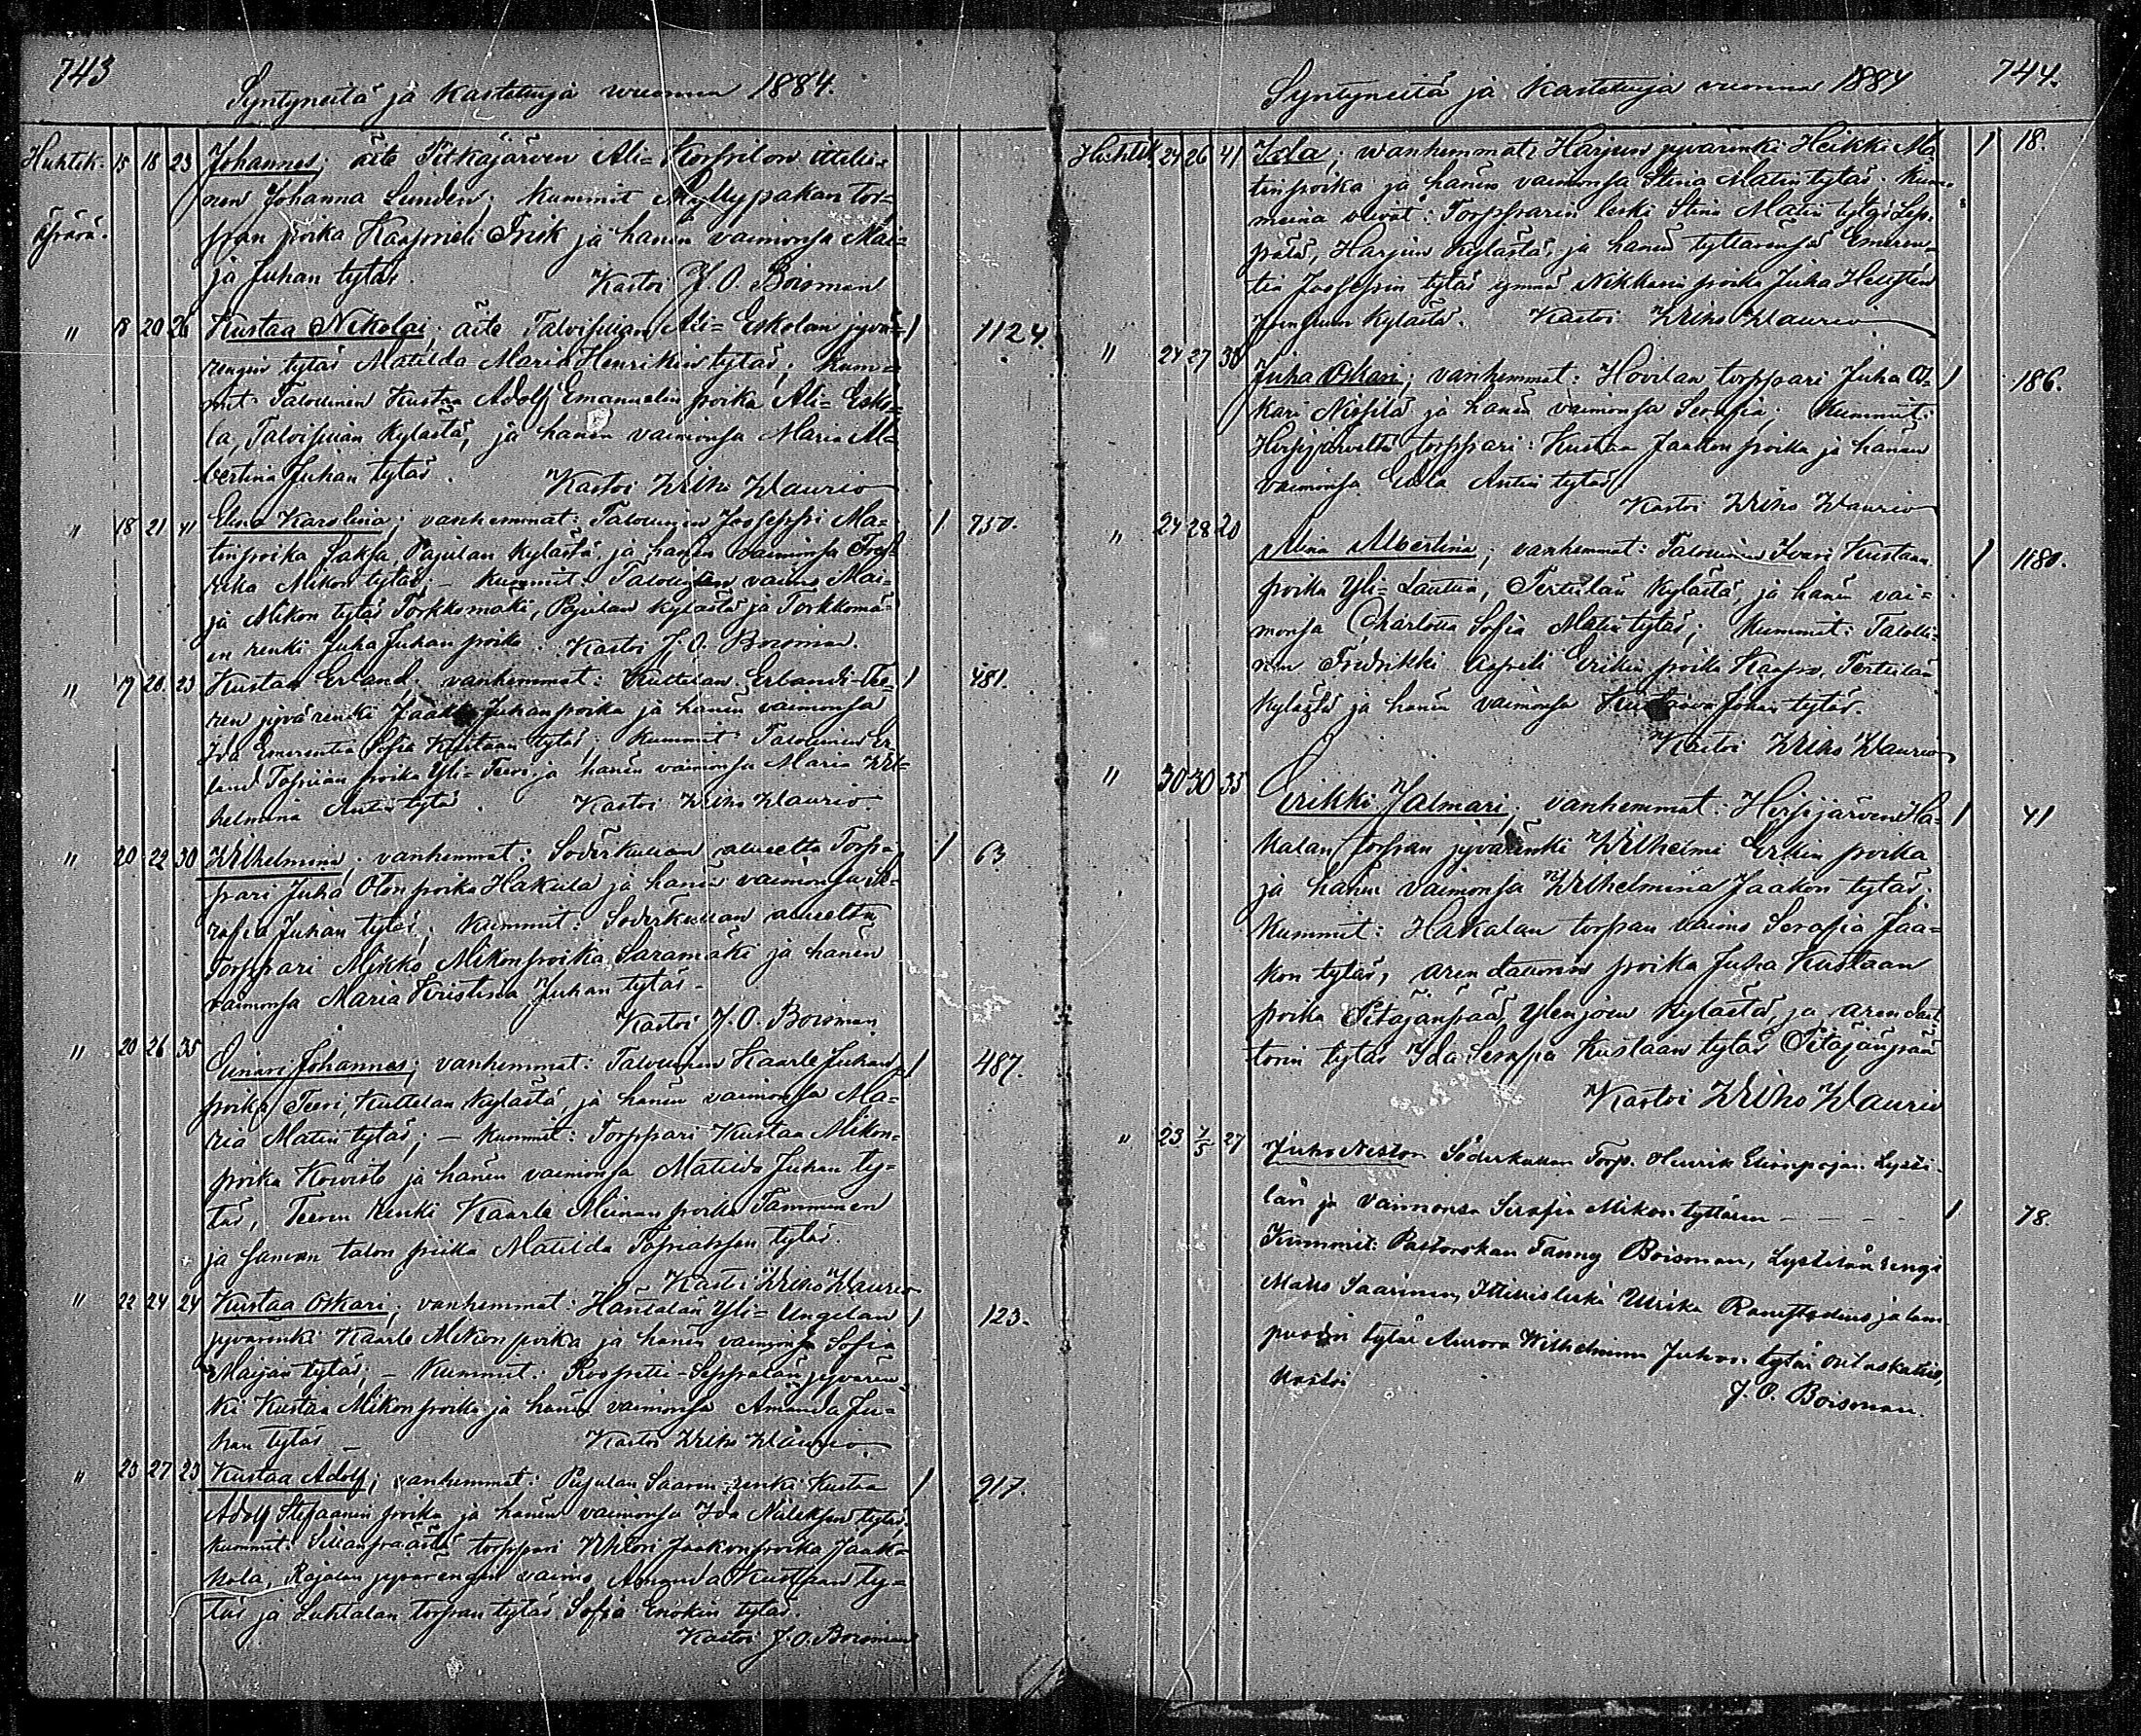 743
Syntyneitä ja kastetuja wuonna 1884.
Huhtik. 15 18 23 Johannes; äite Pitkäjärven Ali-Korpilon ittelli-
nen Johanna Lunden; Kummit Myllypakan tor-
pan poika Kaaprieli Frisk ja hänen vaimonsa Mai-
ja Juhan tytär. Kastoi J. O. Boisman
" 18 20 26 Kustaa Nikolai; äite Talpisuian Ali-Eskolan jyvä- / 1124.
rengin tytär Matilda Maria Henrikin tytär; Kum-
mit Talollinen Kustaa Adolf Emanuelin poika Ali-Esko-
la, kylästä, ja hänen vaimonsa Maria Al-
bertina Juhan tytär. Kastoi Wilho Waurio
" 18 21 41 Elina Karolina; vanhemmat: Talollinen Jooseppi Ma- 1 750.
tinpoika Saksa, Pajulan kylästä, ja hänen vaimonsa Fred-
rika Mikon tytär; – Kummit: Talollisen vaimo Mai-
ja Mikon tytär Torkkomäki, Pajulan kylästä ja Torkkomä-
en renki Juha Juhan poika. Kastoi J. O. Boisman.
" 19 20 23 Kustaa Erland; vanhemmat: Kuttelan Erlandi-Tee- / 481.
ren jyvärenki Jaakko Juhanpoika ja hänen vaimonsa
Ida Emerentia Sofia Kustaan tytär; Kummit Talollinen Er-
land Topiian poika Yli-Teeri ja hänen vaimonsa Maria Wil-
helmina Antin tytär. Kastoi Wilho Waurio
" 20 22 30 Wilhelmina; vanhemmat: Söderkullan alueelta Torp- / 63
pari Juha Oton poika Hakula ja hänen vaimonsa Se-
rafia Juhan tytär; Kummit: Söderkullan alueelta
Torppari Mikko Mikonpoika Saramäki ja hänen
vaimonsa Maria Kristina Juhan tytär –
Kastoi J. O. Boisman
" 20 26 35 Einari Johannes; vanhemmat: Talollinen Kaarle Juhan / 487.
poika Teeri, Kuttelan kylästä, ja hänen vaimonsa Ma-
ria Matin tytär; – Kummit: Torppari Kustaa Mikon-
poika Koivisto ja hänen vaimonsa Matilda Juhan ty-
tär, Teeren renki Kaarle Miinan poika Tamminen
ja saman talon piika Matilda tytär.
Kastoi Wilho Waurio
" 22 24 24 Kustaa Oskari; vanhemmat: Häntälän Yli-Ungelan / 123.
jyvärenki Kaarle Mikon poika ja hänen vaimonsa Sofia
Maijan tytär; – Kummit: Roopetti-Seppälän jyvären-
ki Kustaa Mikon poika ja hänen vaimonsa Amanda Ju-
han tytär – Kastoi Wilho Waurio
" 23 27 23 Kustaa Adolf; vanhemmat: Pajulan Saaren renki Kustaa / 917.
Adolf Stefaanin poika ja hänen vaimonsa Ida tytär;
Kummit: torppari Wihtori Jaakonpoika Jaak-
kola, Rajalan jyvärengin vaimo Amanda Kustaan ty-
tär ja Luhtalan torpan tytär Sofia Enokin tytär.
Kastoi J. O. Boisman
744.
Syntyneitä ja kastetuja vuonna 1884
Huhtik 24 26 41 Ida; wanhemmat: Harjun jyvärenki Heikki Ma- 1 18.
tinpoika ja hänen vaimonsa Stina Matin tytär. Kum-
meina olivat: Torpparin leski Stina Matin tytär Lep-
pälä, Harjun kylästä, ja hänen tyttärensä Emeren-
tia Joosepin tytär ynnä Nikkarin poika Juha Hellsten
kylästä. Kastoi Wilho Waurio
" 24 27 38 Juha Oskari; vanhemmat: Hovilan torppari Juha Os- / 186.
kari Nissilä ja hänen vaimonsa Serafia; Kummit:
Hirsjärveltä torppari Kustaa Jaakon poika ja hänen
vaimonsa Eeva Antin tytär
Kastoi Wilho Waurio
" 24 28 20 Miina Albertina; vanhemmat: Talollinen Ivari Kustaan / 1180.
poika Yli-Lautia, Terttilän kylästä, ja hänen vai-
monsa Charlotta Sofia Matin tytär; Kummit: Talolli-
nen Fredrikki Aapeli Erikin poika Kaapo, Terttilän
kylästä ja hänen vaimonsa Kustaava Johan tytär.
Kastoi Wilho Waurio
" 30 30 35 Erikki Jalmari; vanhemmat: Hirsjärven Ha- / 41
kalan torpan jyvärenki Wilhelmi Erikin poika
ja hänen vaimonsa Wilhelmina Jaakon tytär.
Kummit: Hakalan torpan vaimo Serafia Jaa-
kon tytär, arendaurin poika Juha Kustaan
poika Pitäjänpää Ylenjoen kylästä, ja arendat-
torin tytär Ida Serafia Kustaan tytär Pitäjänpää
Kastoi Wilho Waurio
" 23 7/5 27 Juho Nestor Söderkullan Torp. Henrik Lysti-
län ja vaimonsa Serafia Mikon tyttären – – – – / 78.
Kummit: Pastorskan Fanny Boisman, Lystilän rengi
Matts Saarinen, Ulrika ja lam-
puodin tytär Aurora Wilhelmina Juhan tytär
Kastoi
J. O. Boisman.